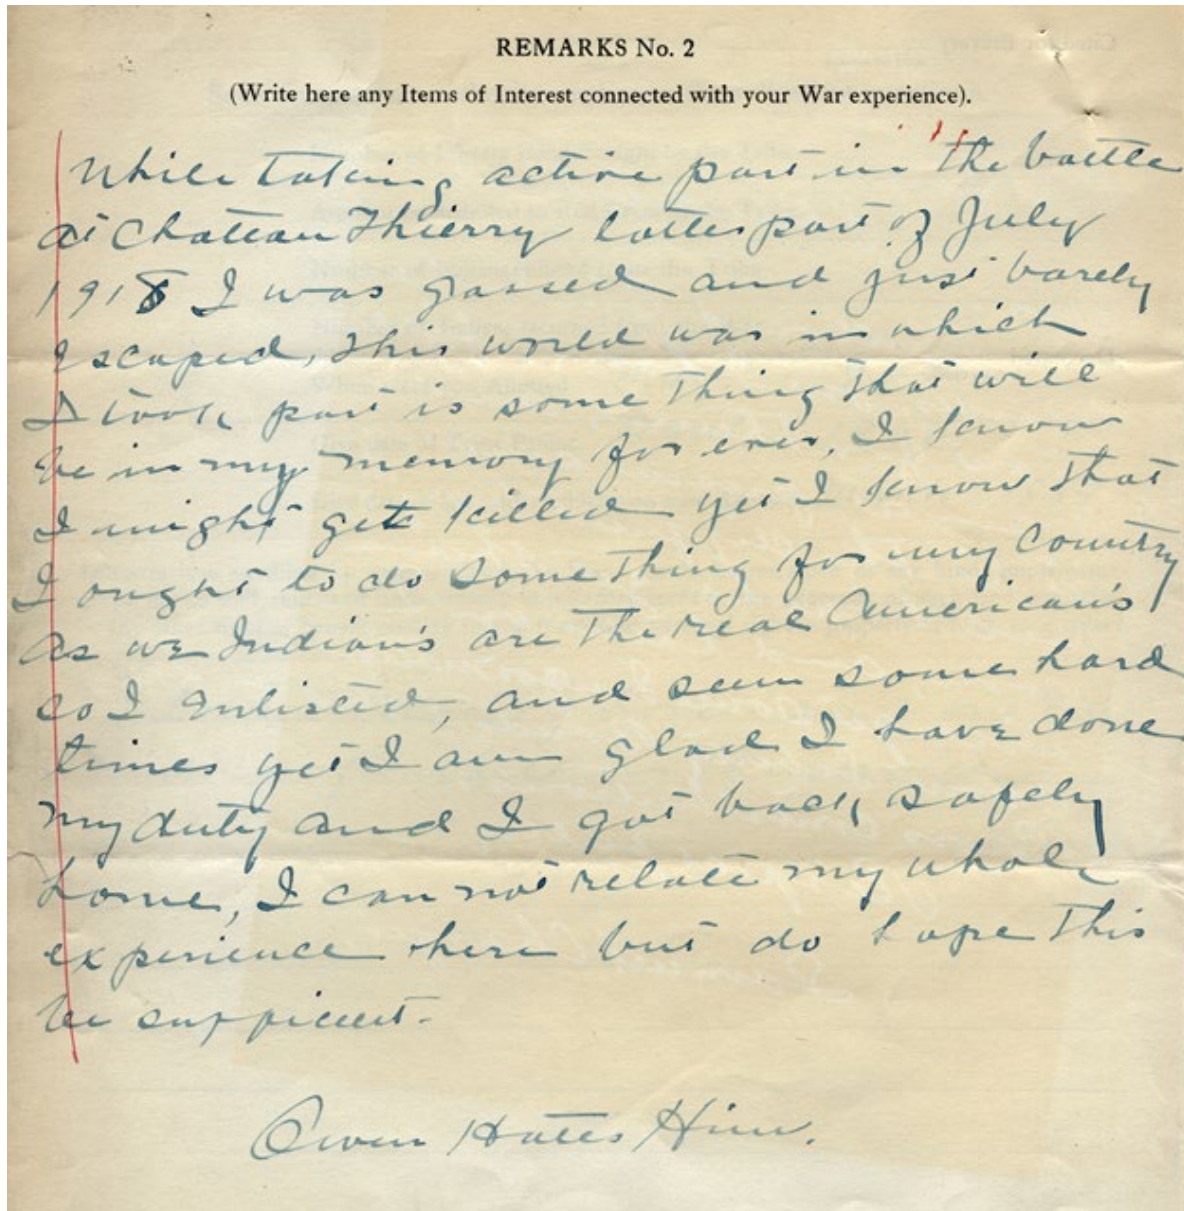 REMARKS No. 2
(Write here any Items of Interest connected with your War experience).
While taking active part in the battle
at Chattau Thierry latter part of July
1918 I was gassed and just barely
escaped, this world was in which
I took part is some thing that will
be in my memory for ever, I know
I might get killed yet I know that
I ought to do some thing for my country
as we Indian's are the real American's
so I enlisted, and seen some hard
times yet I am glad I have done
my duty and I got back safely
home, I can not relate my whole
experience here but do hope this
be sufficient.
Owen Hates Him.